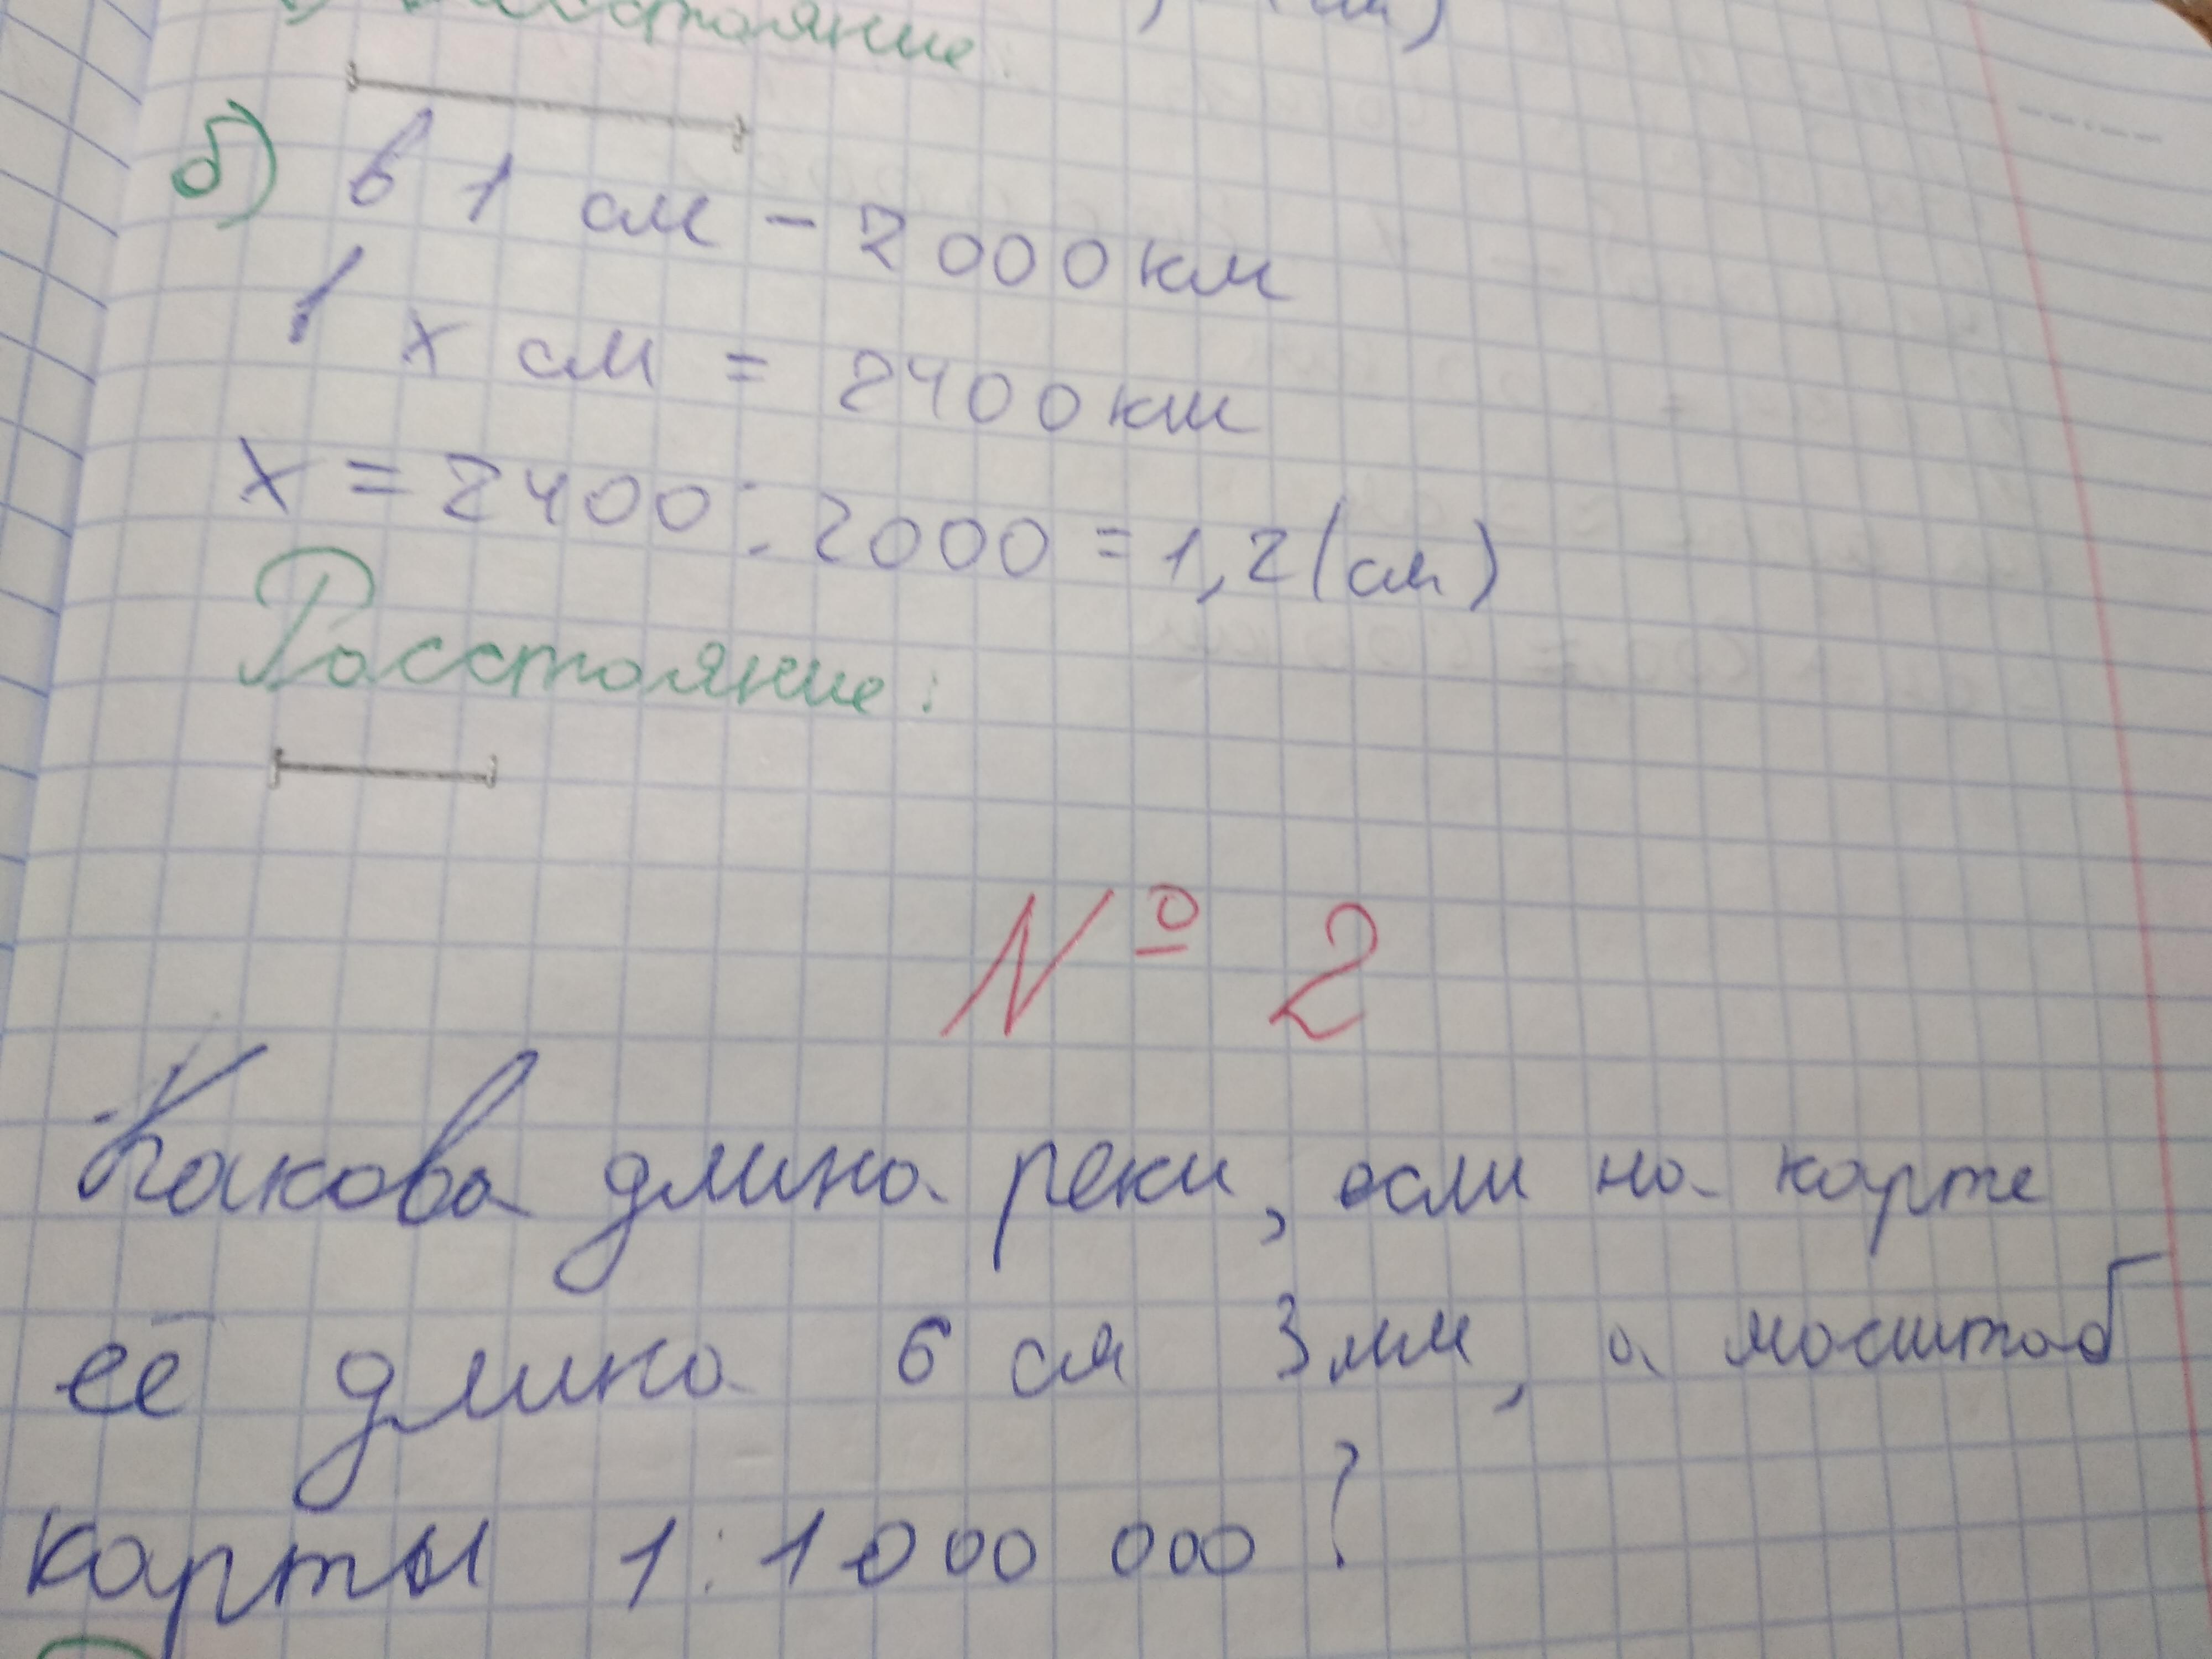 Расстояние:
б) в 1 см - 2000км
х см = 2400км
х = 2400 : 2000 = 1,2(см)
Расстояние:
№ 2
Какова длина реки, если на карте
её длина 6 см 3мм, а масштаб
карты 1 : 1000 000 ?